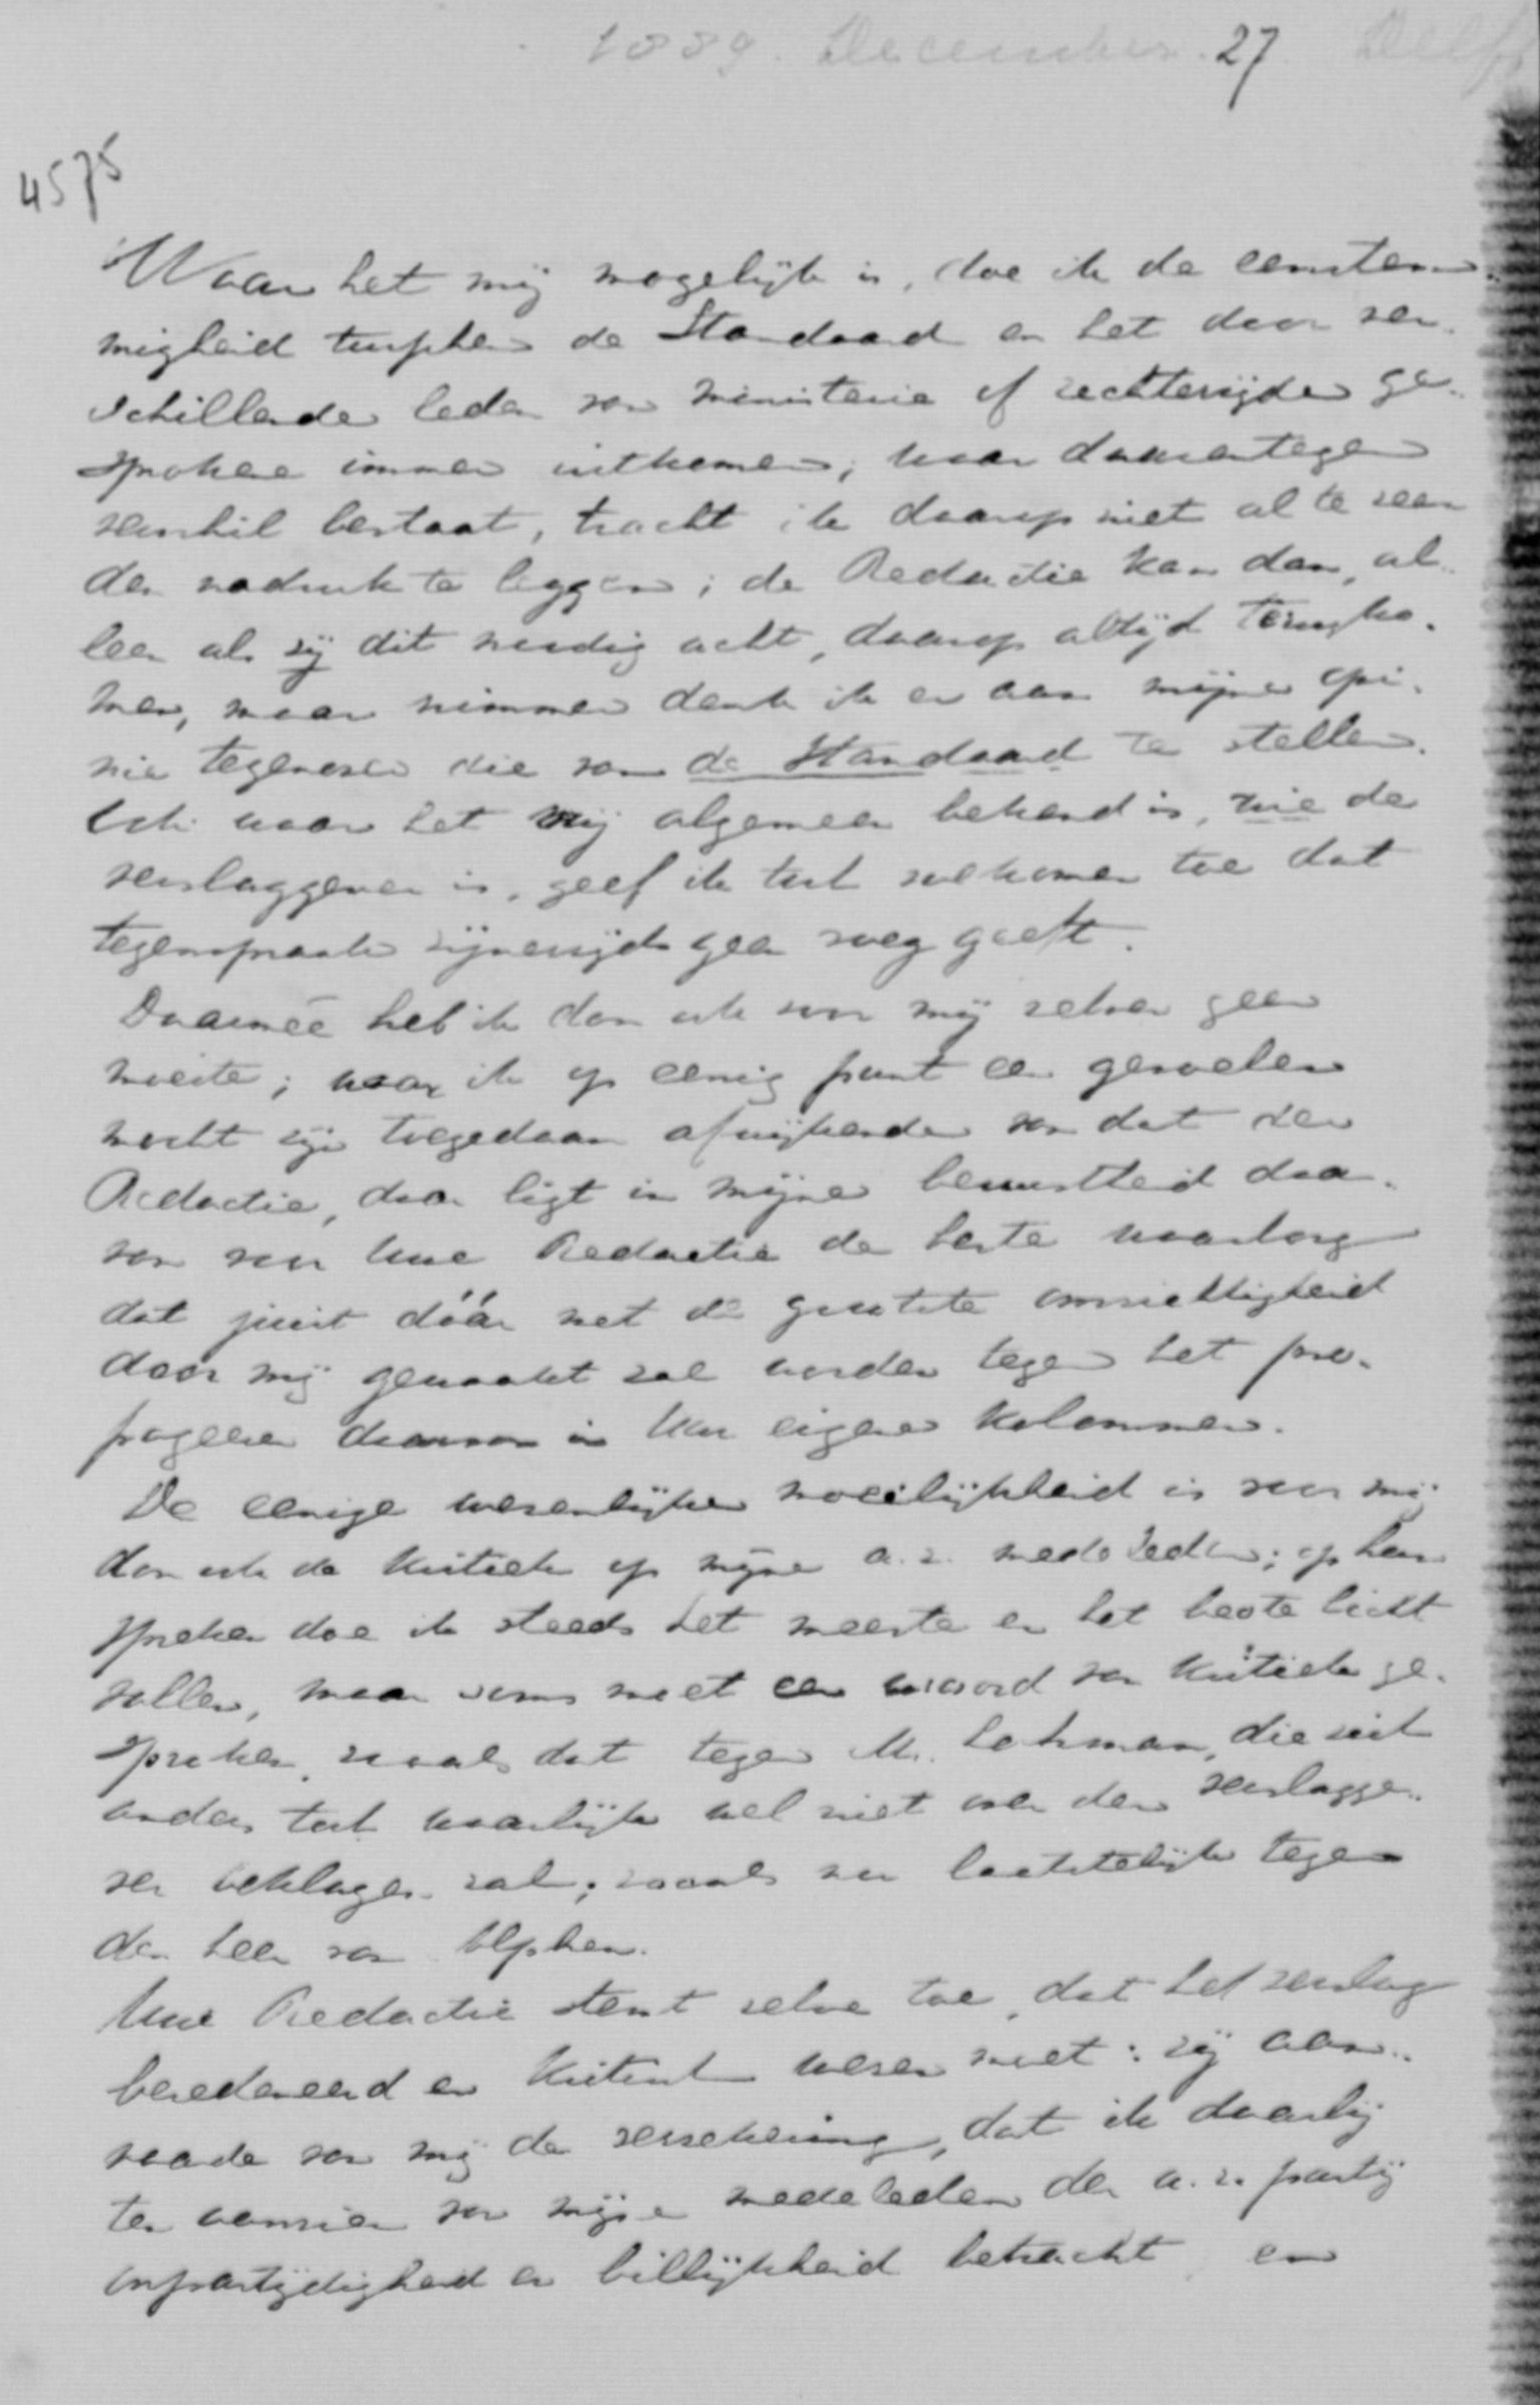 1889. December. 27 Delft
4575
Waar het mij mogelijk is, doe ik de eenstem-
migheid tusschen de Standaard en het door ver-
schillende leden van ministerie of rechterzijde ge-
sprokene immer uitkomen; waar daarentegen
verschil bestaat, tracht ik daarop niet al te zeer
den nadruk te leggen; de Redactie kan dan, al-
leen als zij dit noodig acht, daarop altijd terugko-
men, maar nimmer denk ik er aan mijne opi-
nie tegenover die van de Standaard te stellen.
Ook waar het vrij algemeen bekend is, wie de
verslaggever is, geef ik tot volkomen toe dat
tegenspraak zijnerzijds geen voeg geeft.
Daarmeê heb ik dan ook voor mij zelven geen
moeite; waar ik op eenig punt een gevoelen
mocht zijn toegedaan afwijkende van dat der
Redactie, daar ligt in mijne bewustheid daar-
van voor Uwe Redactie de beste waarborg
dat juist dáár met de grootste omzichtigheid
door mij gewaakt zal worden tegen het pro-
pageeren daarvan in Uwe eigene kolommen.
De eenige wezenlijke moeilijkheid is voor mij
dan ook de kritiek op mijne a.r. medeleden; op hun
spreken doe ik steeds het meeste en het beste licht
vallen, maar soms moet een woord van kritiek ge-
sproken, zooals dat tegen Mr. Lohman, die zich
anders tech waarlijk wel niet over den verslagge-
ver beklagen zal; zooals nu laatstelijk tegen
den heer van Alphen.
Uwe Redactie stemt zelve toe, dat het verslag
beredeneerd en kritisch wezen moet: zij aan-
vaarde van mij de verzekering, dat ik daarbij
ten aanzien van mijne medeleden der a.r. partij
onpartijdigheid en billijkheid betracht en